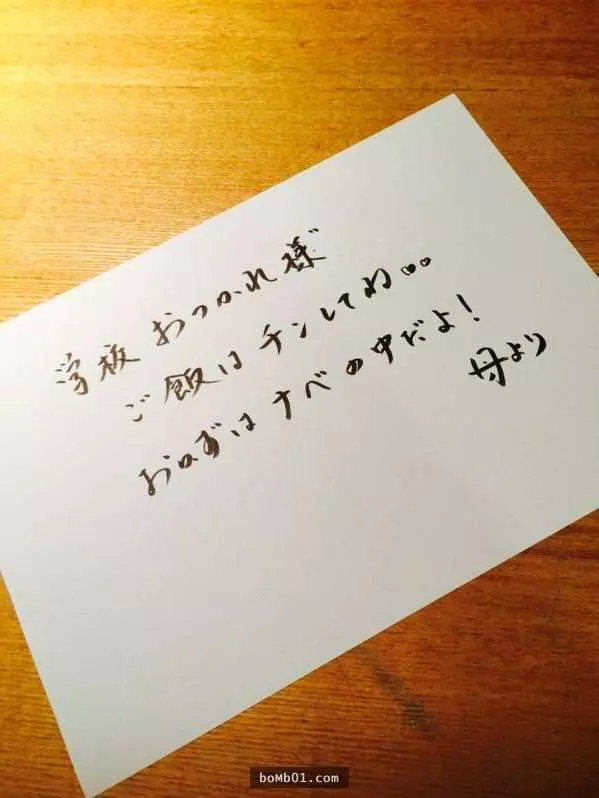 学校 おつかれ様
ご飯は チンしてね。。
おかずは ナベの中だよ!
母より
bomb01.com